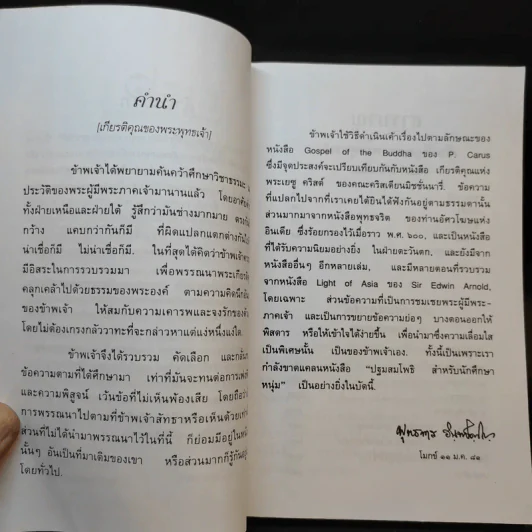 คำนำ
[เกียรติคุณของพระพุทธเจ้า]
ข้าพเจ้าได้พยายามค้นคว้าศึกษาวิชาธรรมะ
ประวัติของพระผู้มีพระภาคเจ้ามานานแล้ว
ทั้งฝ่ายเหนือและฝ่ายใต้ รู้สึกว่ามันช่างมากมาย
กว้าง แคบกว่ากันก็มี ที่ผิดแปลกแตกต่างกัน
น่าเชื่อก็มี ไม่น่าเชื่อก็มี ในที่สุดได้คิดว่าข้าพเจ้า
มีอิสระในการรวบรวมมา เพื่อพรรณนาพระเกียรติ
คลุกเคล้าไปด้วยธรรมของพระองค์ ตามความคิดนึก
ของข้าพเจ้า ให้สมกับความเคารพและจงรัก
โดยไม่ต้องเกรงกลัววาทะที่จะกล่าวหาแต่แง่หนึ่งแง่ใด
ข้าพเจ้าจึงได้รวบรวม คัดเลือก
ข้อความตามที่ได้ศึกษามา เท่าที่มันจะทนต่อการ
และความพิสูจน์ เว้นข้อที่ไม่เห็นพ้องเสีย
การพรรณนาไปตามที่ข้าพเจ้าสัทธาหรือเห็นด้วย
ส่วนที่ไม่ได้นำมาพรรณนาไว้ในที่นี้ ก็ย่อมมีอยู่ใน
นั้นๆ อันเป็นที่มาเดิมของเขา หรือส่วนมากก็รู้กัน
โดยทั่วไป.
ข้าพเจ้าใช้วิธีดำเนินเค้าเรื่องไปตามลักษณะของ
หนังสือ Gospel of the Buddha ของ P. Carus
ซึ่งมีจุดประสงค์จะเปรียบเทียบกันกับหนังสือ เกียรติคุณแห่ง
พระเยซู คริสต์ ของคณะคริสเตียนมิชชั่นนารี. ข้อความ
ที่แปลกไปจากที่เราเคยได้ยินได้ฟังกันอยู่ตามธรรมดานั้น
ส่วนมากมาจากหนังสือพุทธจริต ของท่านอัศวโฆษแห่ง
อินเดีย ซึ่งร้อยกรองไว้เมื่อราว พ.ศ. ๖๐๐, และเป็นหนังสือ
ที่ได้รับความนิยมอย่างยิ่ง ในฝ่ายตะวันตก, และยังมีจาก
หนังสืออื่นๆ อีกหลายเล่ม, และมีหลายตอนที่รวบรวม
จากหนังสือ Light of Asia ของ Sir Edwin Arnold,
โดยเฉพาะ ส่วนข้อความที่เป็นการชมเชยพระผู้มีพระ-
ภาคเจ้า และการขยายข้อความย่อๆ บางตอนออกให้
พิสดาร หรือให้เข้าใจได้ง่ายขึ้น เพื่อนำมาซึ่งความเลื่อมใส
เป็นพิเศษนั้น เป็นของข้าพเจ้าเอง. ทั้งนี้เป็นเพราะเรา
กำลังขาดแคลนหนังสือ "ปฐมสมโพธิ สำหรับนักศึกษา
หนุ่ม" เป็นอย่างยิ่งในบัดนี้.
พุทธทาส อินทปัญโญ
โมกข์ ๑๑ ม.ค. ๘๑